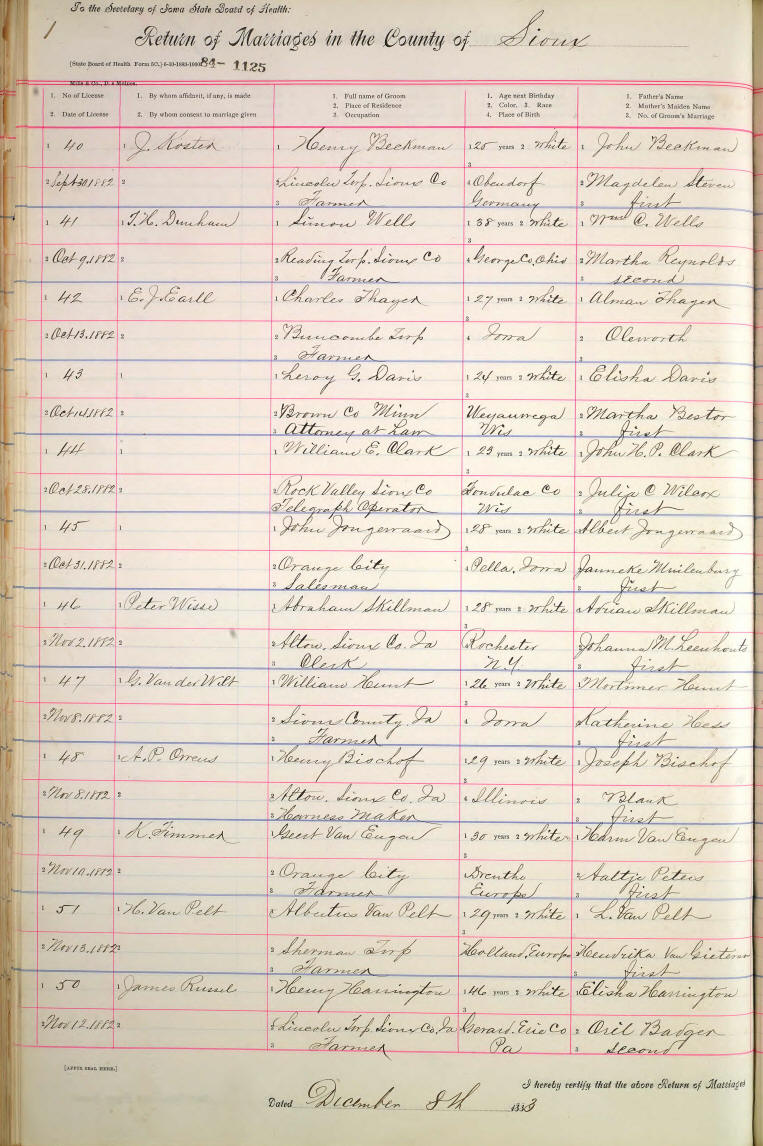 To the Secretary of Iowa State Board of Health:
1
Return of Marriages in the County of Sioux
[State Board of Health Form 5C.] 84- 1125
1. No of License 1. By whom affidavit, if any, is made 1. Full name of Groom 1. Age next Birthday 1. Father's Name
2. Place of Residence 2. Color. 3. Race 2. Mother's Maiden Name
2. Date of License 2. By whom consent to marriage given 3. Occupation 4. Place of Birth 3. No. of Groom's Marriage
1 40 1 J. Koster 1 Henry Beckman 1 25 years 2 White 1 John Beckman
2 Sept 30 1882 2 2 Lincoln Torp. Sioux Co 4 Obendorf 2 Magdelen Steven
3 Farmer Germany 3 first
1 41 1 T. H. Dunham 1 Simon Wells 1 38 years 2 White 1 Wm C. Wells
2 Oct 9, 1882 2 2 Reading Torp. Sioux Co 4 George Co, Ohio 2 Martha Reynolds
3 Farmer 3 second
1 42 1 E. J. Earll 1 Charles Thayer 1 27 years 2 White 1 Alman Thayer
2 Oct 13, 1882 2 2 Buncombe Torp 4 Iowa 2 Oleworth
3 Farmer 3
1 43 1 1 Leroy G. Davis 1 24 years 2 White 1 Elisha Davis
2 Oct 14, 1882 2 2 Brown Co Minn Weyauwega 2 Martha Bestor
3 Attorney at Law Wis 3 first
1 44 1 1 William E. Clark 1 25 years 2 White 1 John H. P. Clark
2 Oct 28, 1882 2 2 Rock Valley Sioux Co Fondulac Co 2 Julia C Wilcox
Telegraph Operator Wis 3 first
1 45 1 1 John Jongewaard 1 28 years 2 White Albert Jongewaard
2 Oct 31, 1882 2 2 Orange City 4 Pella, Iowa Janneke Muilenburg
3 Salesman 3 first
1 46 1 Peter Wisse 1 Abraham Skillman 1 28 years 2 White Adrian Skillman
2 Nov 2, 1882 2 2 Alton, Sioux Co. Ia Rochester Johanna M. Leenhouts
3 Clerk N.Y. 3 first
1 47 1 G. Van der Wilt 1 William Hunt 1 26 years 2 White Mortimer Hunt
2 Nov 8, 1882 2 2 Sioux County, Ia 4 Iowa Katherine Hess
3 Farmer 3 first
1 48 1 A. P. Orreus 1 Henry Bischof 1 29 years 2 White 1 Joseph Bischof
2 Nov 8, 1882 2 2 Alton, Sioux Co, Ia 4 Illinois 2 Blank
3 Harness Maker 3 first
1 49 1 K. Timmer 1 Geert Van Eugen 1 30 years 2 White 1 Harm Van Eugen
2 Nov 10, 1882 2 2 Orange City Drenthe 2 Aaltje Peters
3 Farmer Europe 3 first
1 51 1 H. Van Pelt Albertus Van Pelt 1 29 years 2 White 1 L. Van Pelt
2 Nov 13, 1882 2 2 Sherman Torp Holland, Europe Hendrika Van
3 Farmer 3 first
1 50 1 James Russel 1 Henry Harrington 1 46 years 2 White Elisha Harrington
2 Nov 12, 1882 2 Lincoln Torp. Sioux Co, Ia Gerard, Erie Co 2 Oril Badger
3 Farmer Pa 3 second
[AFFIX SEAL HERE.]
I hereby certify that the above Return of Marriages
Dated December 8th 1883